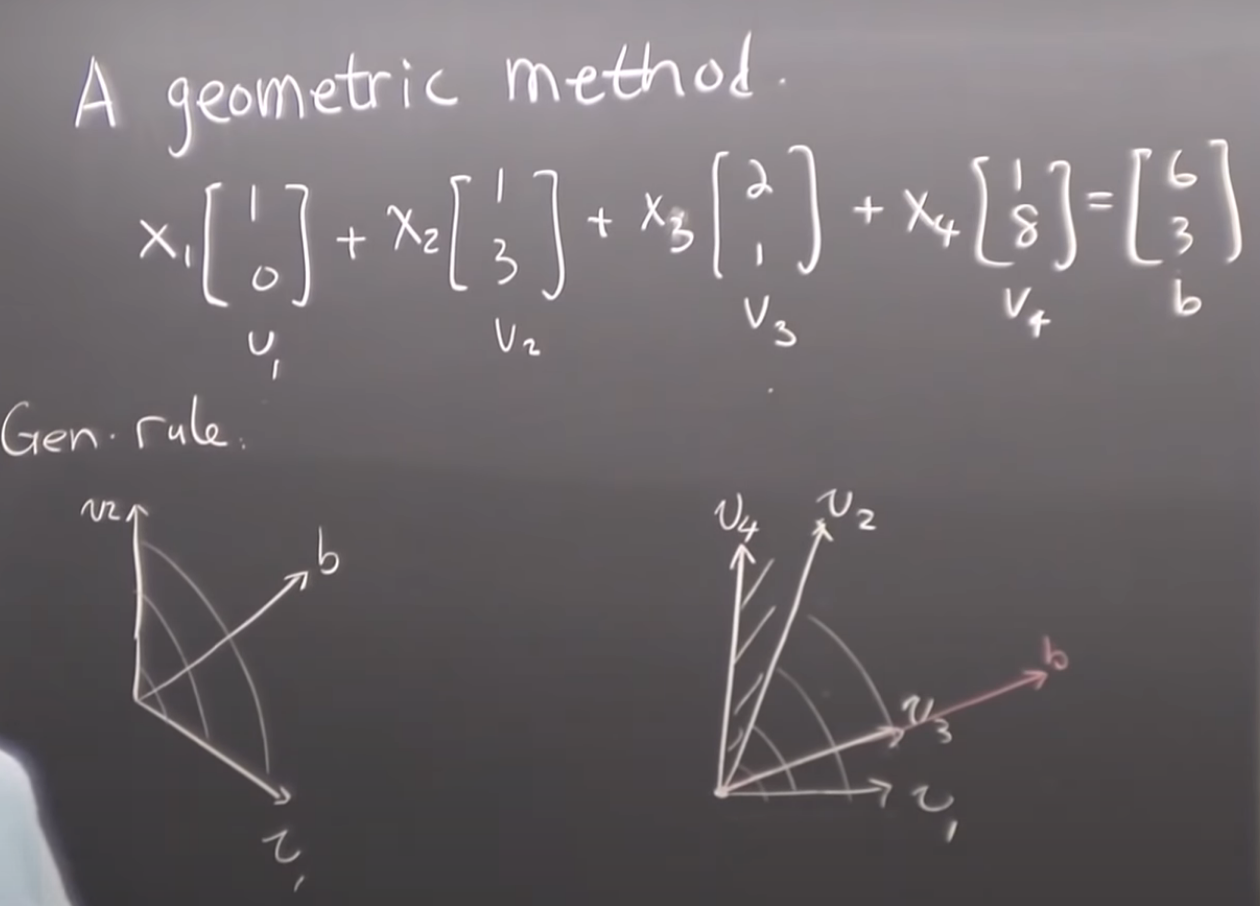 A geometric method.
x₁ [1 0] + x₂ [1 3] + x₃ [2 1] + x₄ [1 8] = [6 3]
v₁ v₂ v₃ v₄ b
Gen. rule.
v₂ b v₁
v₄ v₂ b v₃ v₁